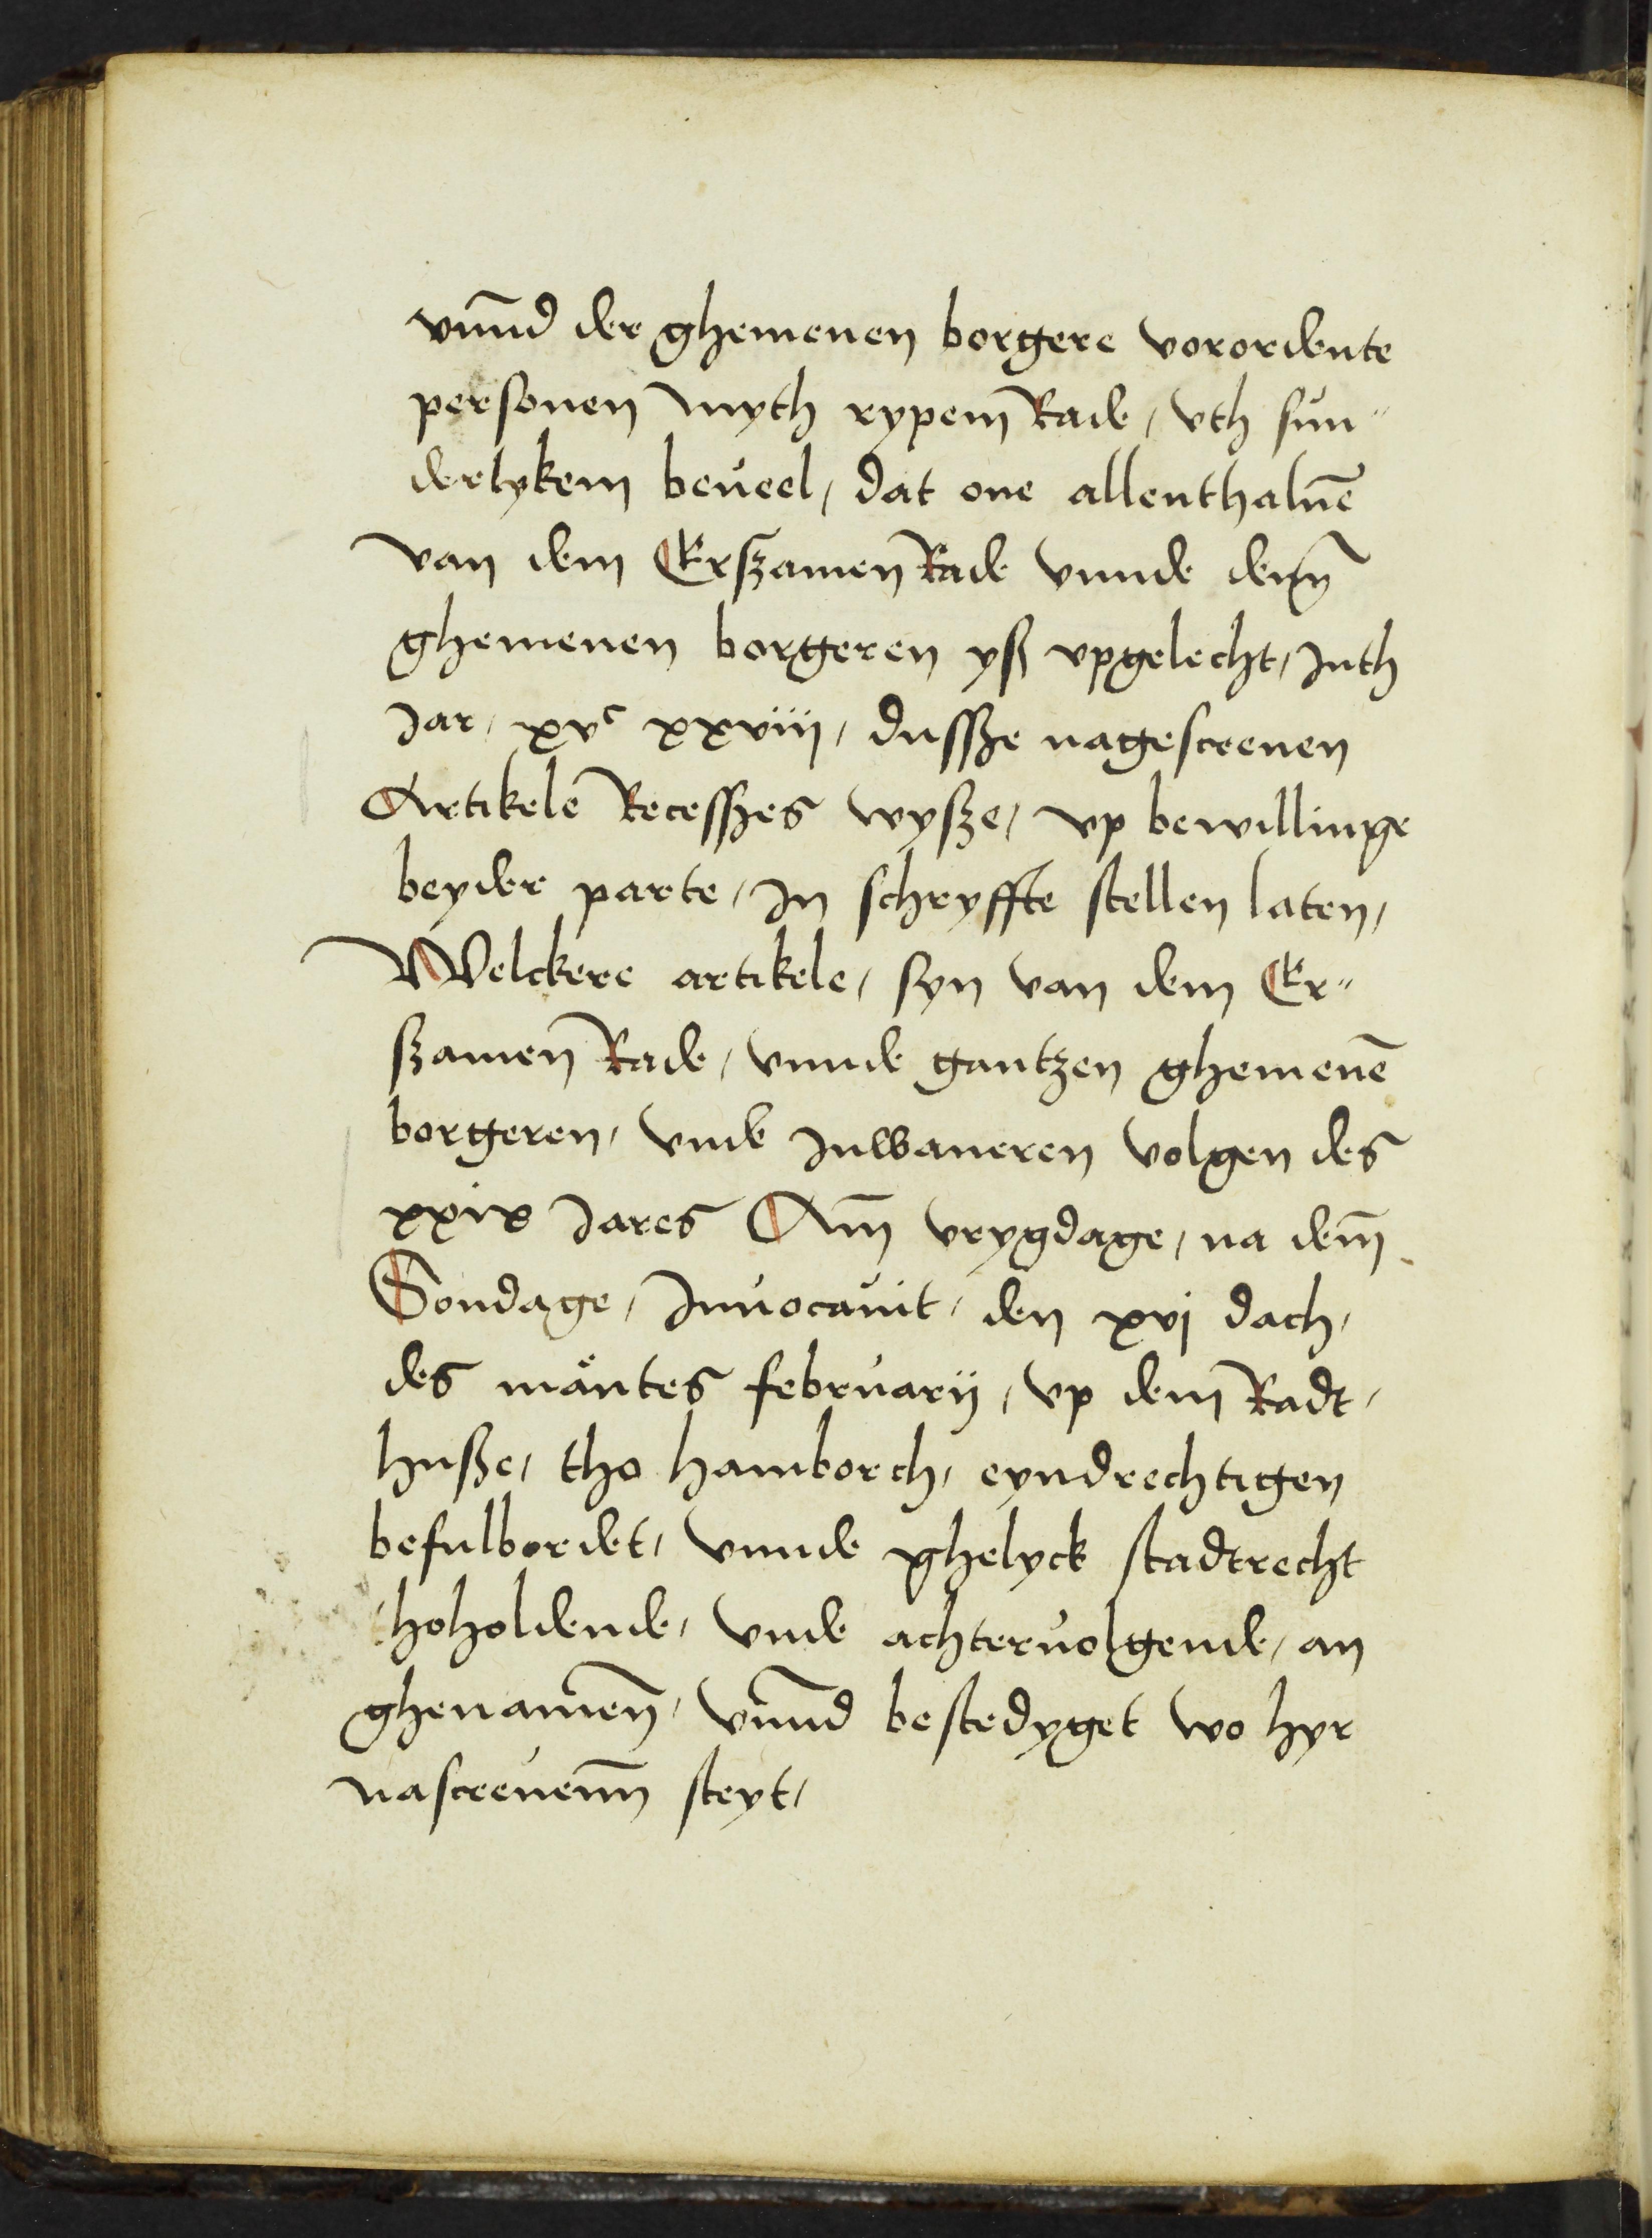 vnn̄d der ghemenen borgere vorordente
personen myth rypem Rade, vth sŭn⸗
derlykem beŭeel, dat one allenthaluē
van dem Erszamen Rade vnnde denn̄
ghemenen borgeren ysz vpgelecht, Inth
Jar, xvᶜ xxviij, dussze nagescreuen
Artikele Recesszes wysze, vp bewillinge
beyder parte, In schryffte stellen laten,
Welckere artikele, syn van dem Er⸗
szamen Rade, vnnde gantzen ghemenē
borgeren, vnde Inwaneren volgen des
xxix Jares Am̄ vrygdage, na dem̄
Sondage, Inŭocaŭit, den xvj dach,
des måntes februarij, vp dem Radt,
husze, tho hamborch, eyndrechtigen
befulbordet, vnnde ghelyck stadtrecht
thoholdende, vnde achterŭolgende, an
ghenamen̄, vnn̄d bestedyget wo hyr
nascreuenn̄ steyt,